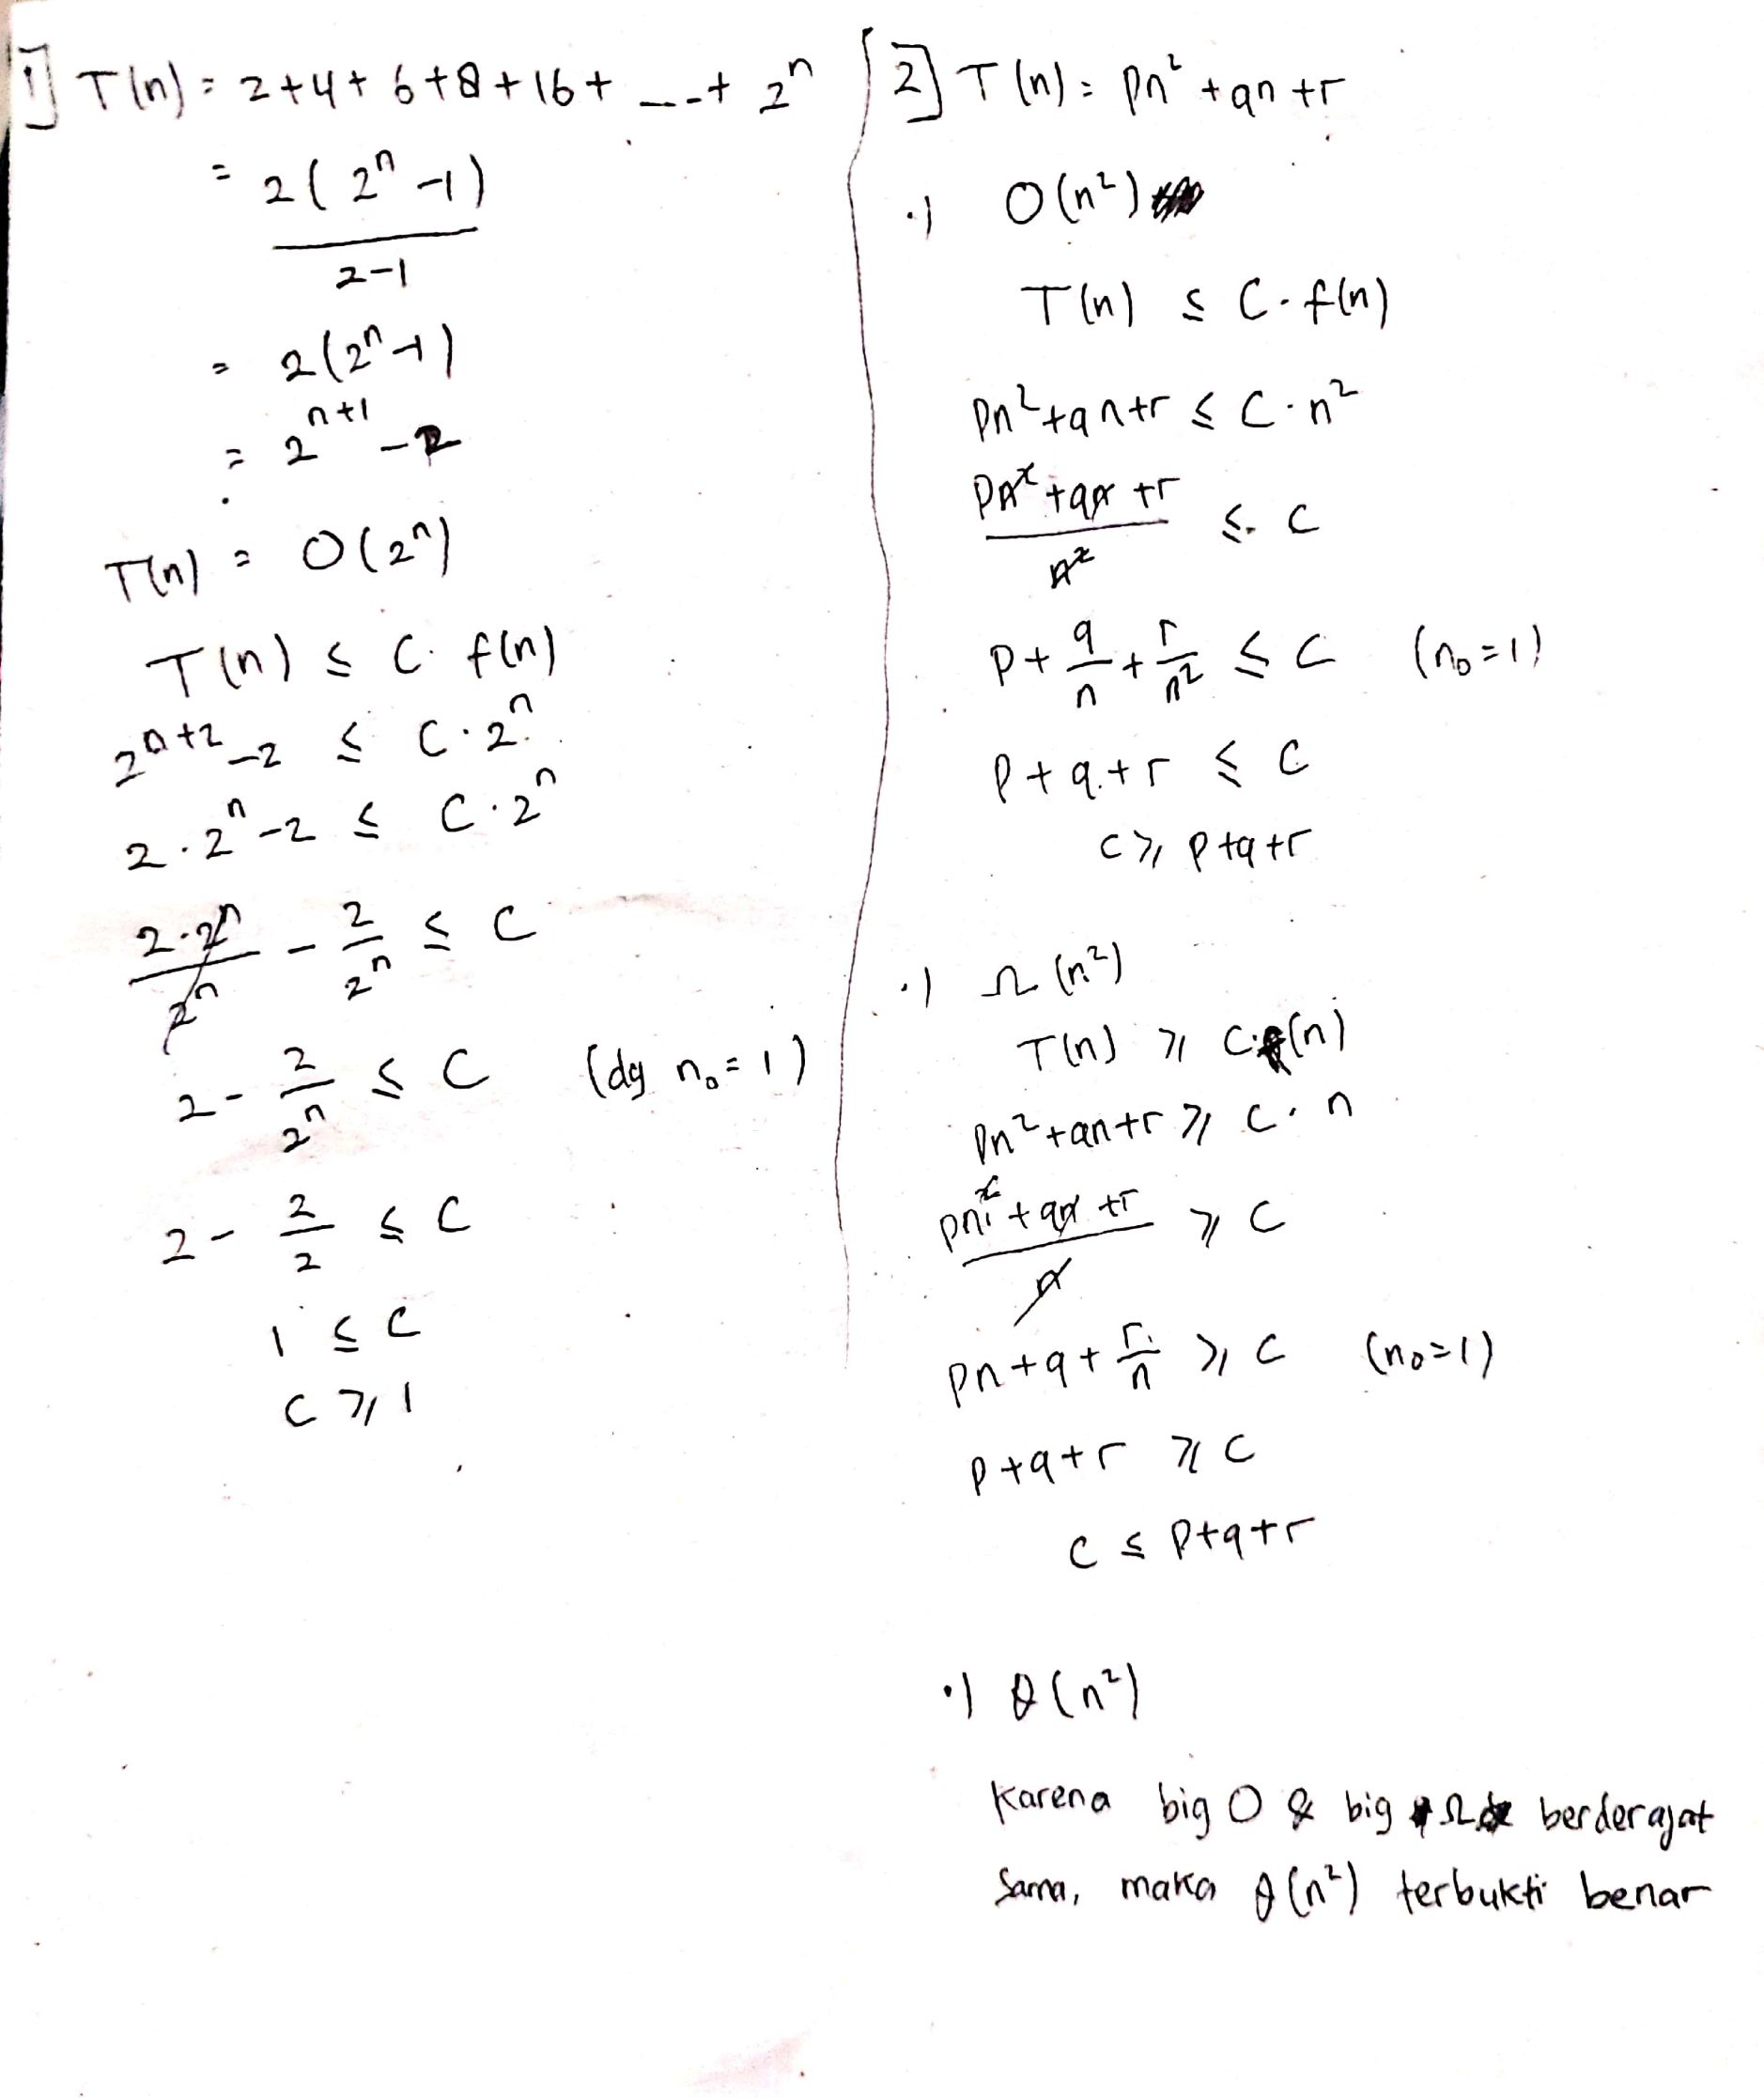 1] T(n) = 2+4+6+8+16+ ---+ 2ⁿ
= 2(2ⁿ-1)
2-1
= 2(2ⁿ-1)
= 2ⁿ⁺¹ - 2
T(n) = O(2ⁿ)
T(n) ≤ C. f(n)
2ⁿ⁺² -2 ≤ C.2ⁿ
2.2ⁿ-2 ≤ C.2ⁿ
2.2ⁿ/2ⁿ - 2/2ⁿ ≤ C
2 - 2/2ⁿ ≤ C (dg n₀=1)
2 - 2/2 ≤ C
1 ≤ C
C ≥ 1
2] T(n) = pn² + qn + r
.) O(n²)
T(n) ≤ C. f(n)
pn²+qn+r ≤ C.n²
pn²+qn+r
n²
≤ C
p + q/n + r/n² ≤ C (n₀=1)
p+q+r ≤ C
C ≥ p+q+r
.) Ω (n²)
T(n) ≥ C. (n)
pn²+qn+r ≥ C.n
pn²+qn+r
n
≥ C
pn+q+ r/n ≥ C (n₀=1)
p+q+r ≥ C
C ≤ p+q+r
.) θ(n²)
Karena big O & big Ω berderajat
Sama, maka θ(n²) terbukti benar